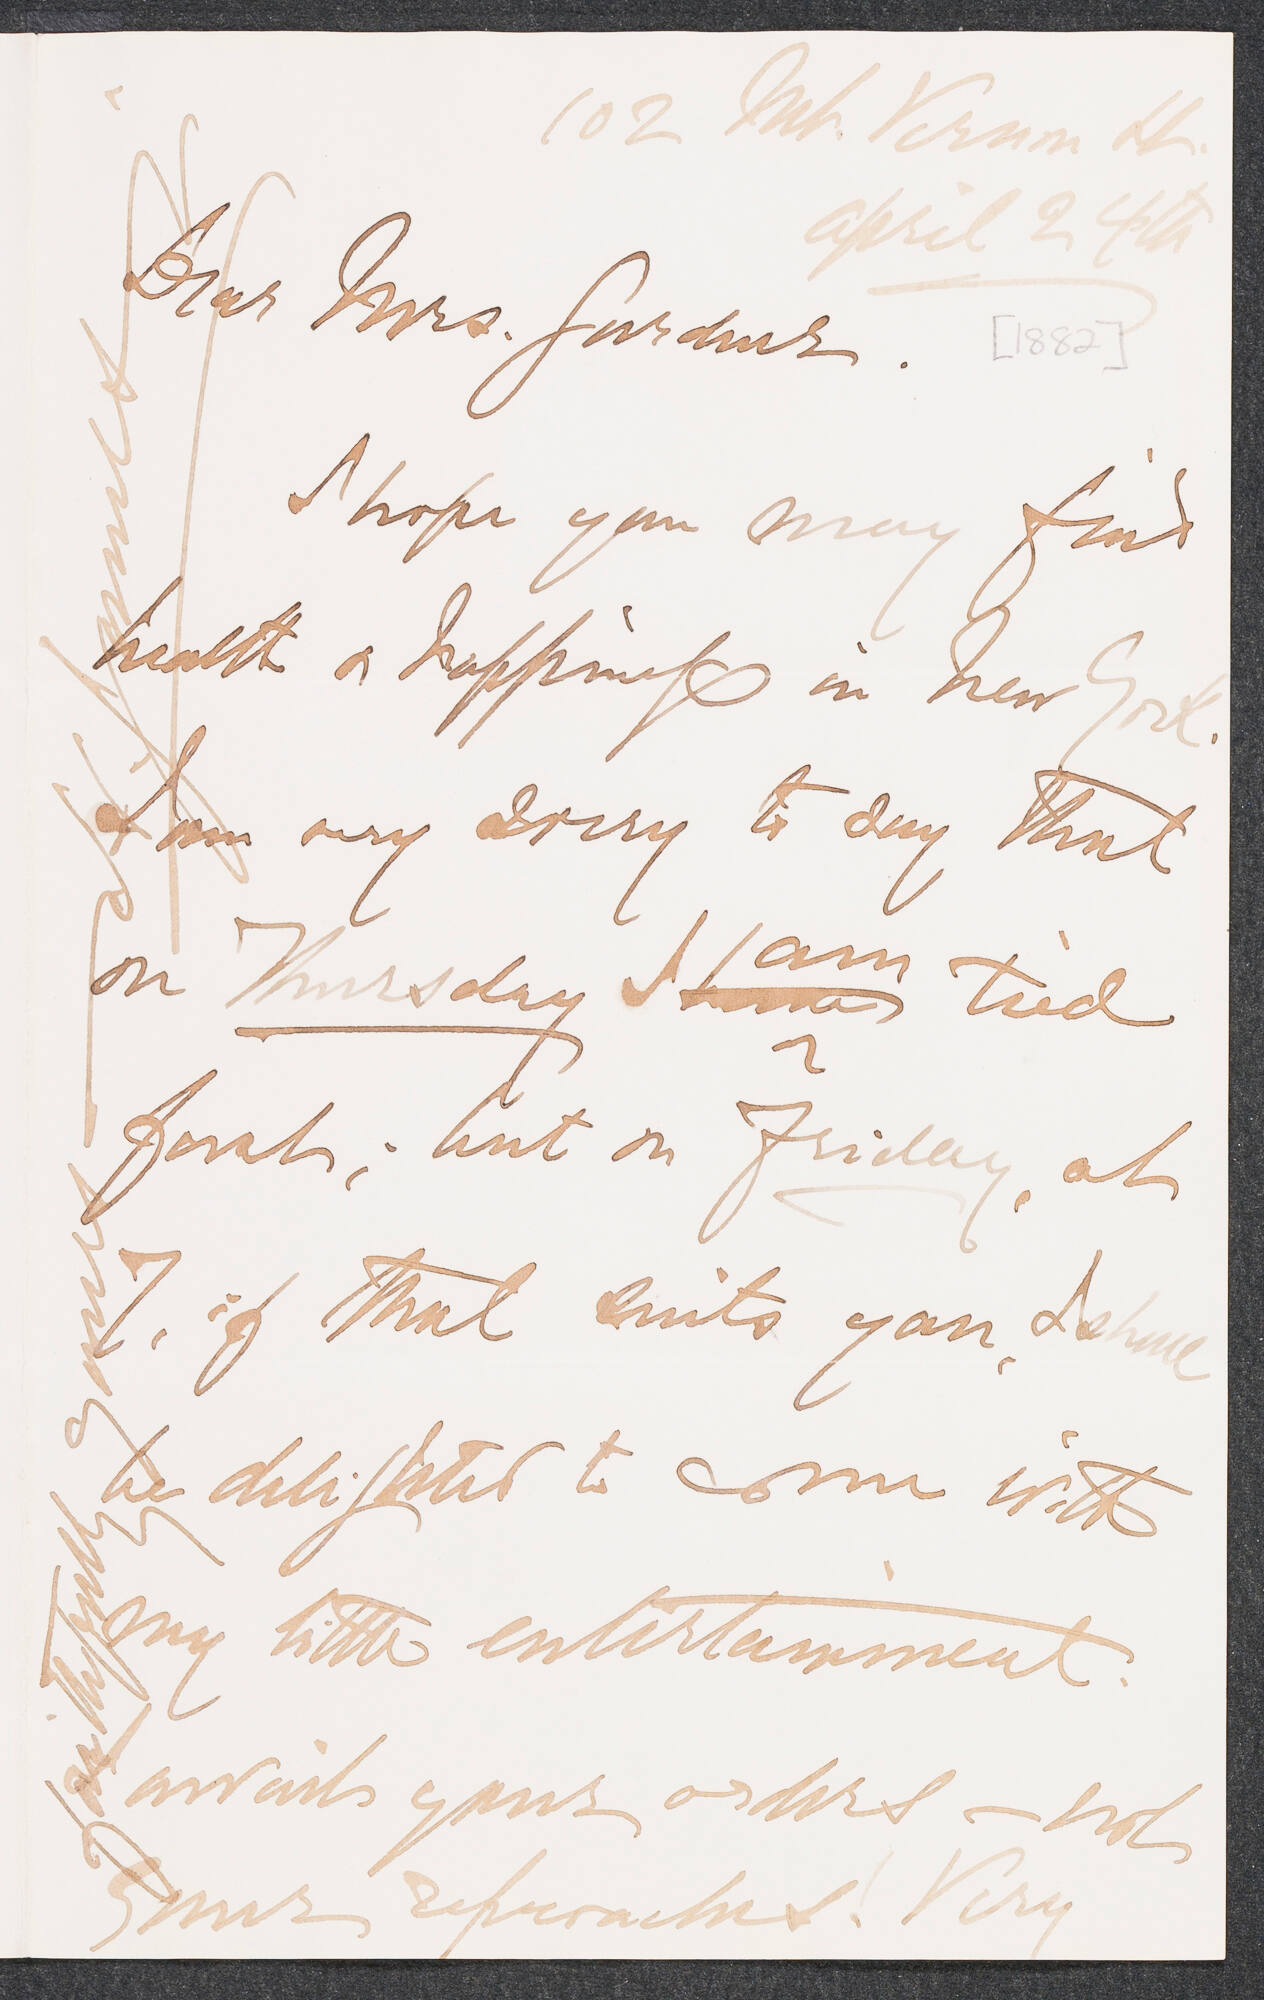 102 Mt. Vernon St.
April 24th
[1882]
Dear Mrs. Gardner.
I hope you may find
health & happiness in New York.
I am very sorry to say that
on Thursday I have am tied
fast; but on Friday, at
7, if that suits you, I shall
be delighted to come with
my little entertainment.
I await your orders — not
your reproaches! Very
faithfully yours
H. James